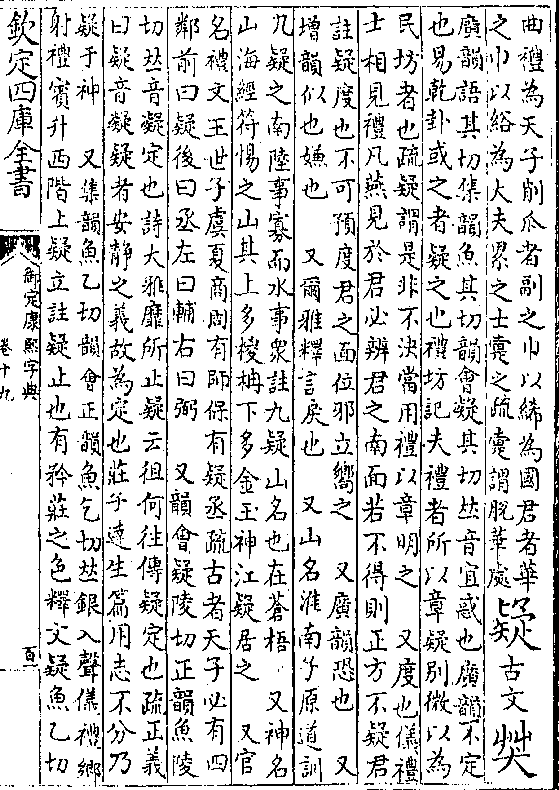 曲禮為天子削瓜者副之巾以絺為國君者華
之巾以綌為大夫累之士疐之疏疐謂脫華處
疑古文𠤕
廣韻語其切集韻魚其切韻會疑其切𠀤音宜惑也廣韻不定
也易乾卦或之者疑之也禮坊記夫禮者所以章疑別微以為
民坊者也疏疑謂是非不決當用禮以章明之 又度也儀禮
士相見禮凡燕見於君必辨君之南面若不得則正方不疑君
註疑度也不可預度君之面位邪立嚮之 又廣韻恐也 又
增韻似也嫌也 又爾雅釋言戾也 又山名淮南子原道訓
九疑之南陸事寡而水事衆註九疑山名也在蒼梧 又神名
山海經符惕之山其上多椶枏下多金玉神江疑居之 又官
名禮文王世子虞夏商周有師保有疑丞疏古者天子必有四
鄰前曰疑後曰丞左曰輔右曰弼 又韻會疑陵切正韻魚陵
切𠀤音凝定也詩大雅靡所止疑云徂何往傳疑定也疏正義
曰疑音凝疑者安靜之義故為定也莊子達生篇用志不分乃
疑于神 又集韻魚乙切韻會正韻魚乞切𠀤銀入聲儀禮鄉
射禮賓升西階上疑立註疑止也有矜莊之色釋文疑魚乙切
欽定四庫全書
御定康熙字典
卷十九
百一